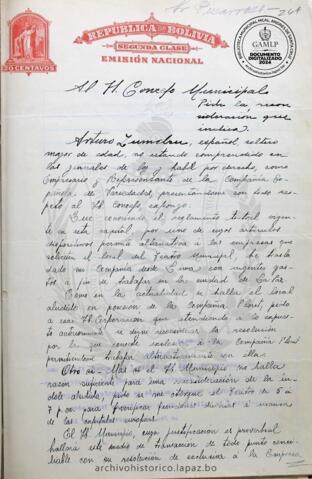 264
REPUBLICA DE BOLIVIA
SEGUNDA CLASE
EMISIÓN NACIONAL
20 CENTAVOS
GAMLP
DOCUMENTO
DIGITALIZADO
2024
Al H. Concejo Municipal
Pide la recon
sideración que
indica.
Arturo, español, soltero
mayor de edad, no estando comprendido en
las de la ley y hábil por derecho, como
Empresario y Representante de la Compañía Es
pañola de Variedades, presentándome con todo res
peto al H. Concejo expongo:
Que conociendo el reglamento teatral vigen
te en esta capital, por uno de cuyos artículos
dispositivos permite alternativa a las empresas que
soliciten el local del Teatro Municipal, he trasla
dado mi Compañía desde con ingentes gas
tos a fin de trabajar en la ciudad de La Paz.
Como en la actualidad se halla el local
aludido en posesión de la Compañía, pido
a esa H. Corporación que atendiendo a lo expues
to se digne reconsiderar la resolución
por la que concede exclusiva a la Compañía
permitiéndome trabajar alternativamente con ella.
Otro sí.- Mas si el H. Municipio no halla
razón suficiente para una reconsideración de la in
dole aludida, pido se me otorgue el Teatro de 5 a
7 p.m. para funciones a manera
de las
El H. Municipio, cuya justificación es proverbial
hallará este medio de transacción de todo punto conci
liable con su resolución de exclusiva a la Empresa
archivohistorico.lapaz.bo